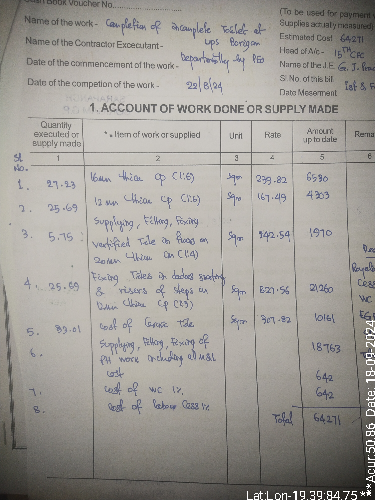 Book Voucher No.
(To be used for payment
Supplies actually measured)
Name of the work - Completion of incomplete Toilet at
UPS Barigan
Estimated Cost 64271
Name of the Contractor Excecutant -
Head of A/c - 15TH CFC
Date of the commencement of the work - Departmentally by PEO
Name of the J.E. G. J.
Sl. No. of this bill
Date of the competion of work - 22/8/24
Date Meserment
1. ACCOUNT OF WORK DONE OR SUPPLY MADE
Quantity executed or supply made
* * Item of work or supplied
Unit
Rate
Amount up to date
Rema
Sl No.
1 2 3 4 5 6
1. 27.23 16mm thick CP (1:6) Sqm 239.82 6530
2. 25.69 12 mm thick CP (1:6) Sqm 167.49 4303
3. 5.75 Supplying, Fitting, Fixing
vertified Tile in floor on
20mm thick CM (1:4) Sqm 342.54 1970
4. 25.69 Fixing Tiles in dados skirting
& risers of steps on
12mm thick CP (1:3) Sqm 827.56 21260
5. 33.01 cost of Tile Sqm 307.82 10161
6. Supplying, Fitting, Fixing of
PH work including all
cost 18763
7. cost of WC 1% 642
8. cost of labour Cess 1% 642
Total 64271
Royalty
Cess
WC
Lat:Lon-19.39:84.75***Acur:50.86 Date, 18-09-2024